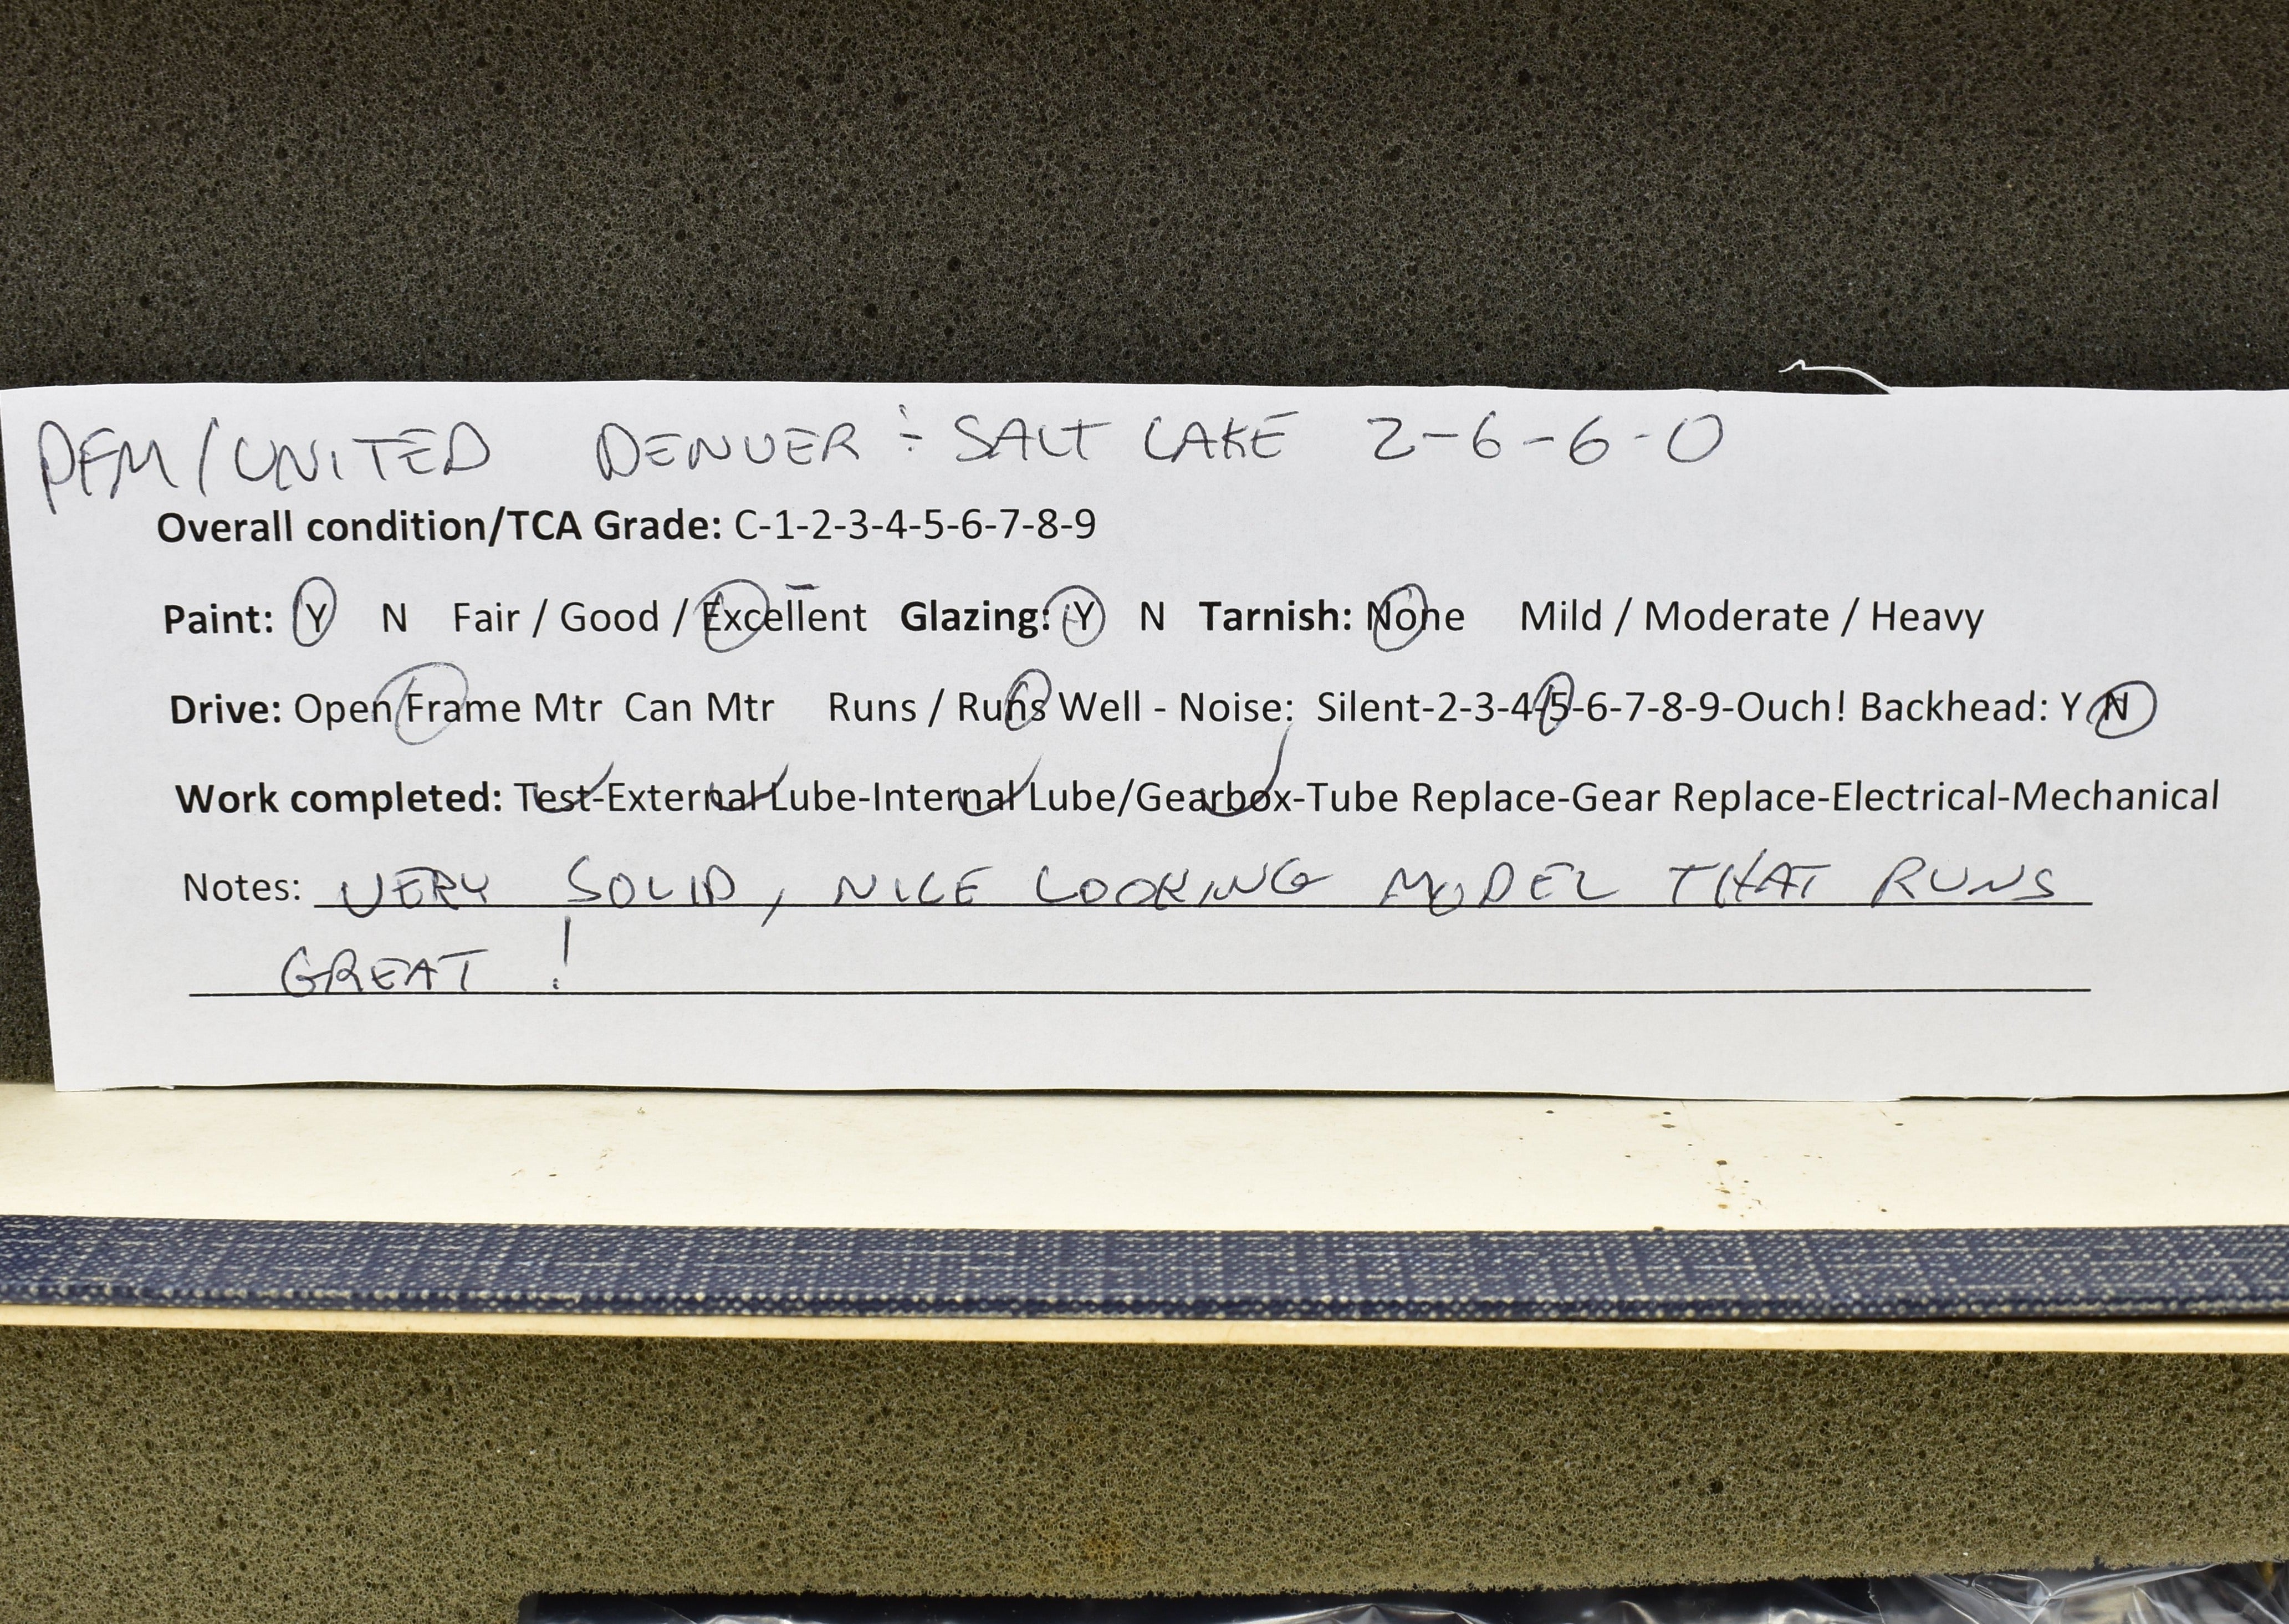 PFM/UNITED DENVER ÷ SALT LAKE 2-6-6-0
Overall condition/TCA Grade: C-1-2-3-4-5-6-7-8-9
Paint: Y N Fair / Good / Excellent Glazing: Y N Tarnish: None Mild / Moderate / Heavy
Drive: Open Frame Mtr Can Mtr Runs / Runs Well - Noise: Silent-2-3-4-5-6-7-8-9-Ouch! Backhead: Y N
Work completed: Test-External Lube-Internal Lube/Gearbox-Tube Replace-Gear Replace-Electrical-Mechanical
Notes: VERY SOLID, NICE LOOKING MODEL THAT RUNS
GREAT !